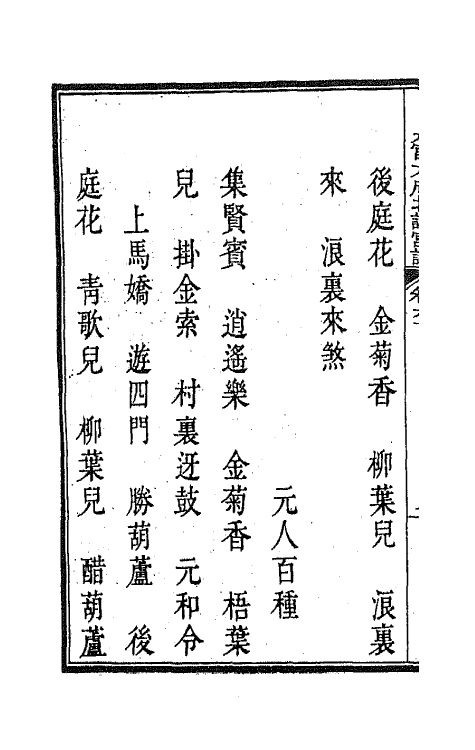 後庭花　金菊香　柳葉兒　浪裏
來　浪裏來煞
元人百種
集賢賓　逍遙樂　金菊香　梧葉
兒　掛金索　村裏迓鼓　元和令
上馬嬌　遊四門　勝葫蘆　後
庭花　青歌兒　柳葉兒　醋葫蘆